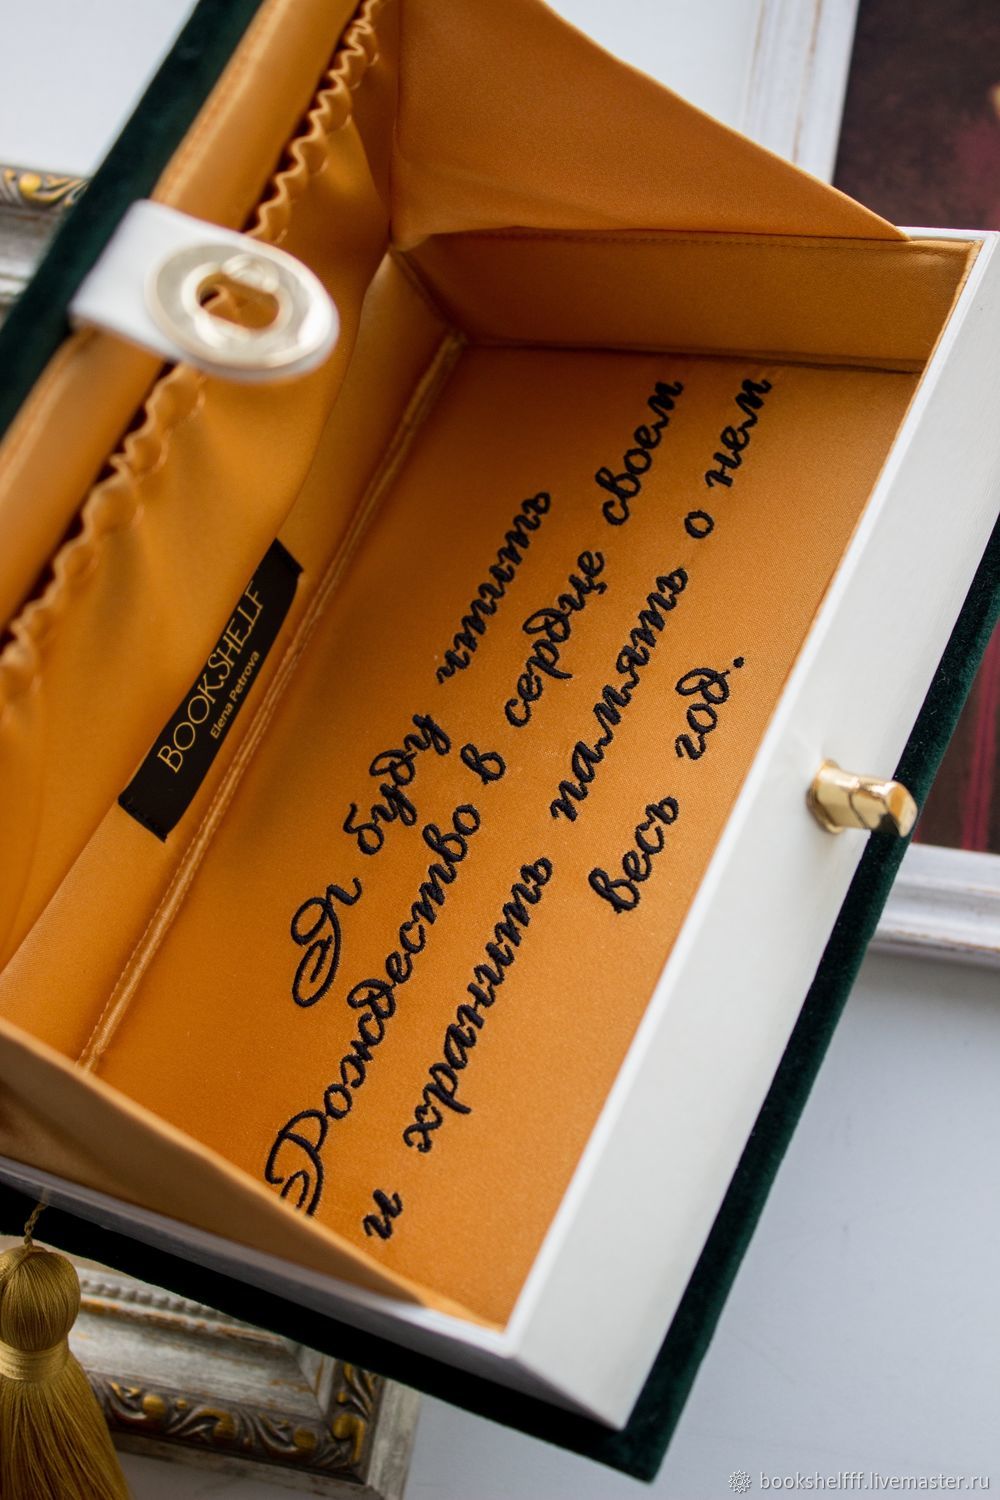 BOOKSHELF
Elena Petrova
Я буду чтить
Рождество в сердце своем
и хранить память о нем
весь год.
bookshelfff.livemaster.ru